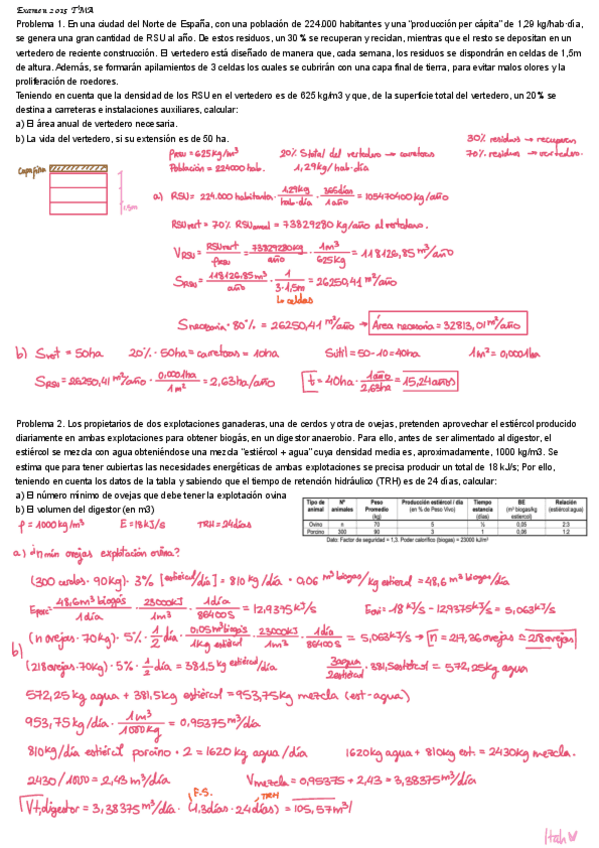 Examen 2015 TMA
Problema 1. En una ciudad del Norte de España, con una población de 224.000 habitantes y una "producción per cápita" de 1,29 kg/hab·dia,
se genera una gran cantidad de RSU al año. De estos residuos, un 30 % se recuperan y reciclan, mientras que el resto se depositan en un
vertedero de reciente construcción. El vertedero está diseñado de manera que, cada semana, los residuos se dispondrán en celdas de 1,5m
de altura. Además, se formarán apilamientos de 3 celdas los cuales se cubrirán con una capa final de tierra, para evitar malos olores y la
proliferación de roedores.
Teniendo en cuenta que la densidad de los RSU en el vertedero es de 625 kg/m3 y que, de la superficie total del vertedero, un 20 % se
destina a carreteras e instalaciones auxiliares, calcular:
a) El área anual de vertedero necesaria.
b) La vida del vertedero, si su extensión es de 50 ha.
30% residuos → recuperan
ρRSU = 625kg/m³ 20% Stotal del vertedero → carreteras 70% residuos → vertedero.
Capa fina Población = 224000 hab. 1,29kg/hab·día
1,5m
a) RSU = 224.000 habitantes · 1,29kg/hab·día · 365días/1año = 105470400 kg/año
RSUvert = 70% RSUanual = 73829280 kg/año al vertedero.
VRSU = RSUvert/ρRSU = 73829280kg/año · 1m³/625kg = 118126,85 m³/año
SRSU = 118126,85m³/año · 1/3·1,5m = 26250,41 m²/año
↳ celdas
Snecesaria · 80% = 26250,41 m²/año → Área necesaria = 32813,01 m²/año
b) Svert = 50ha 20% · 50ha = carreteras = 10ha Sútil = 50-10 = 40ha 1m² = 0,0001ha
SRSU = 26250,41 m²/año · 0,0001ha/1m² = 2,63ha/año t = 40ha · 1año/2,63ha = 15,24años
Problema 2. Los propietarios de dos explotaciones ganaderas, una de cerdos y otra de ovejas, pretenden aprovechar el estiércol producido
diariamente en ambas explotaciones para obtener biogás, en un digestor anaerobio. Para ello, antes de ser alimentado al digestor, el
estiércol se mezcla con agua obteniéndose una mezcla "estiércol + agua" cuya densidad media es, aproximadamente, 1000 kg/m3. Se
estima que para tener cubiertas las necesidades energéticas de ambas explotaciones se precisa producir un total de 18 kJ/s; Por ello,
teniendo en cuenta los datos de la tabla y sabiendo que el tiempo de retención hidráulico (TRH) es de 24 días, calcular:
a) El número mínimo de ovejas que debe tener la explotación ovina
b) El volumen del digestor (en m3)
Tipo de animal Nº animales Peso Promedio (kg) Producción estiércol / día (en % de Peso Vivo) Tiempo estancia (días) BE (m³ biogás/kg estiércol) Relación (estiércol:agua)
Ovino n 70 5 ½ 0,05 2:3
Porcino 300 90 3 1 0,06 1:2
Dato: Factor de seguridad = 1,3. Poder calorífico (biogás) = 23000 kJ/m³
ρ = 1000 kg/m³ E = 18kJ/s TRH = 24días
a) ¿n mín ovejas explotación ovina?
(300 cerdos · 90kg) · 3% [estiércol/día] = 810 kg/día · 0,06 m³ biogás/kg estiércol = 48,6 m³ biogás/día
Eporc = 48,6m³ biogás/1día · 23000kJ/1m³ · 1día/86400s = 12,9375kJ/s Eovi = 18 kJ/s − 12,9375kJ/s = 5,063kJ/s
(n ovejas · 70kg) · 5% · 1/2 día · 0,05m³biogás/1kg estiércol · 23000kJ/1m³ · 1día/86400s = 5,063kJ/s → n = 217,36 ovejas ≈ 218 ovejas
b)
(218 ovejas · 70kg) · 5% · 1/2 día = 381,5 kg estiércol/día 3agua/2estiércol · 381,5estiércol = 572,25kg agua
572,25 kg agua + 381,5kg estiércol = 953,75kg mezcla (est-agua)
953,75 kg/día · 1m³/1000kg = 0,95375 m³/día
810kg/día estiércol porcino · 2 = 1620 kg agua/día 1620kg agua + 810kg est. = 2430kg mezcla.
2430/1000 = 2,43 m³/día Vmezcla = 0,95375 + 2,43 = 3,38375 m³/día
F.S. TRH
Vt,digestor = 3,38375 m³/día · (1,3días · 24días) = 105,57m³